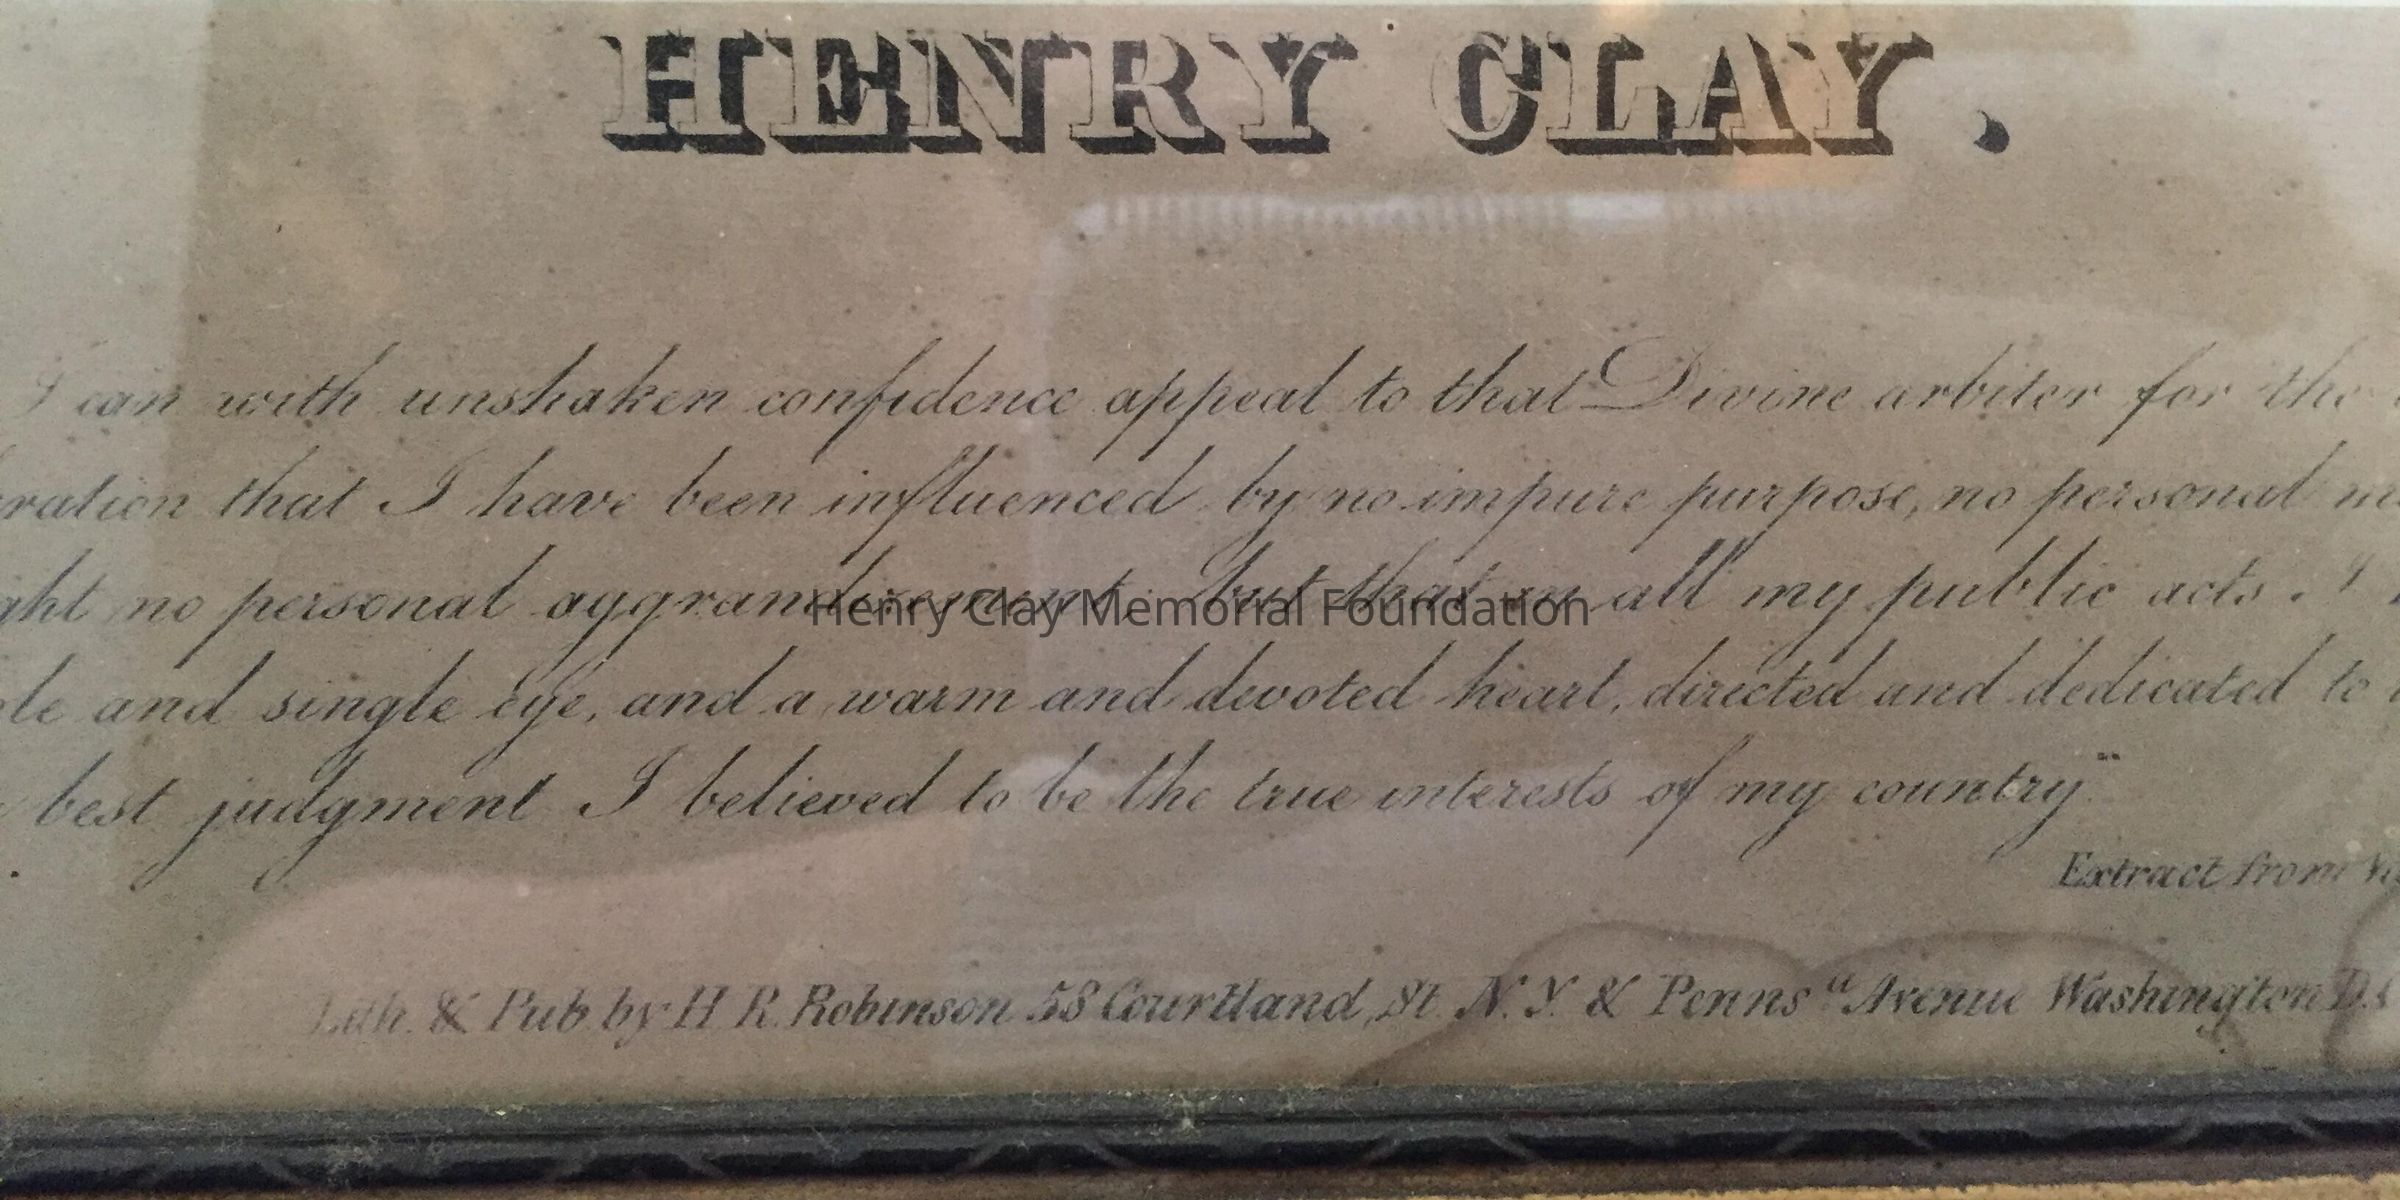 HENRY CLAY.
I can with unshaken confidence appeal to that Divine arbiter for the
ration that I have been influenced by no impure purpose, no personal
ght no personal aggrandizement; but that in all my public acts I
le and single eye, and a warm and devoted heart, directed and dedicated to
best judgment I believed to be the true interests of my country"
Henry Clay Memorial Foundation
Extract from
Lith. & Pub by H. R. Robinson 58 Courtland, St. N.Y. & Penns a Avenue Washington D.C